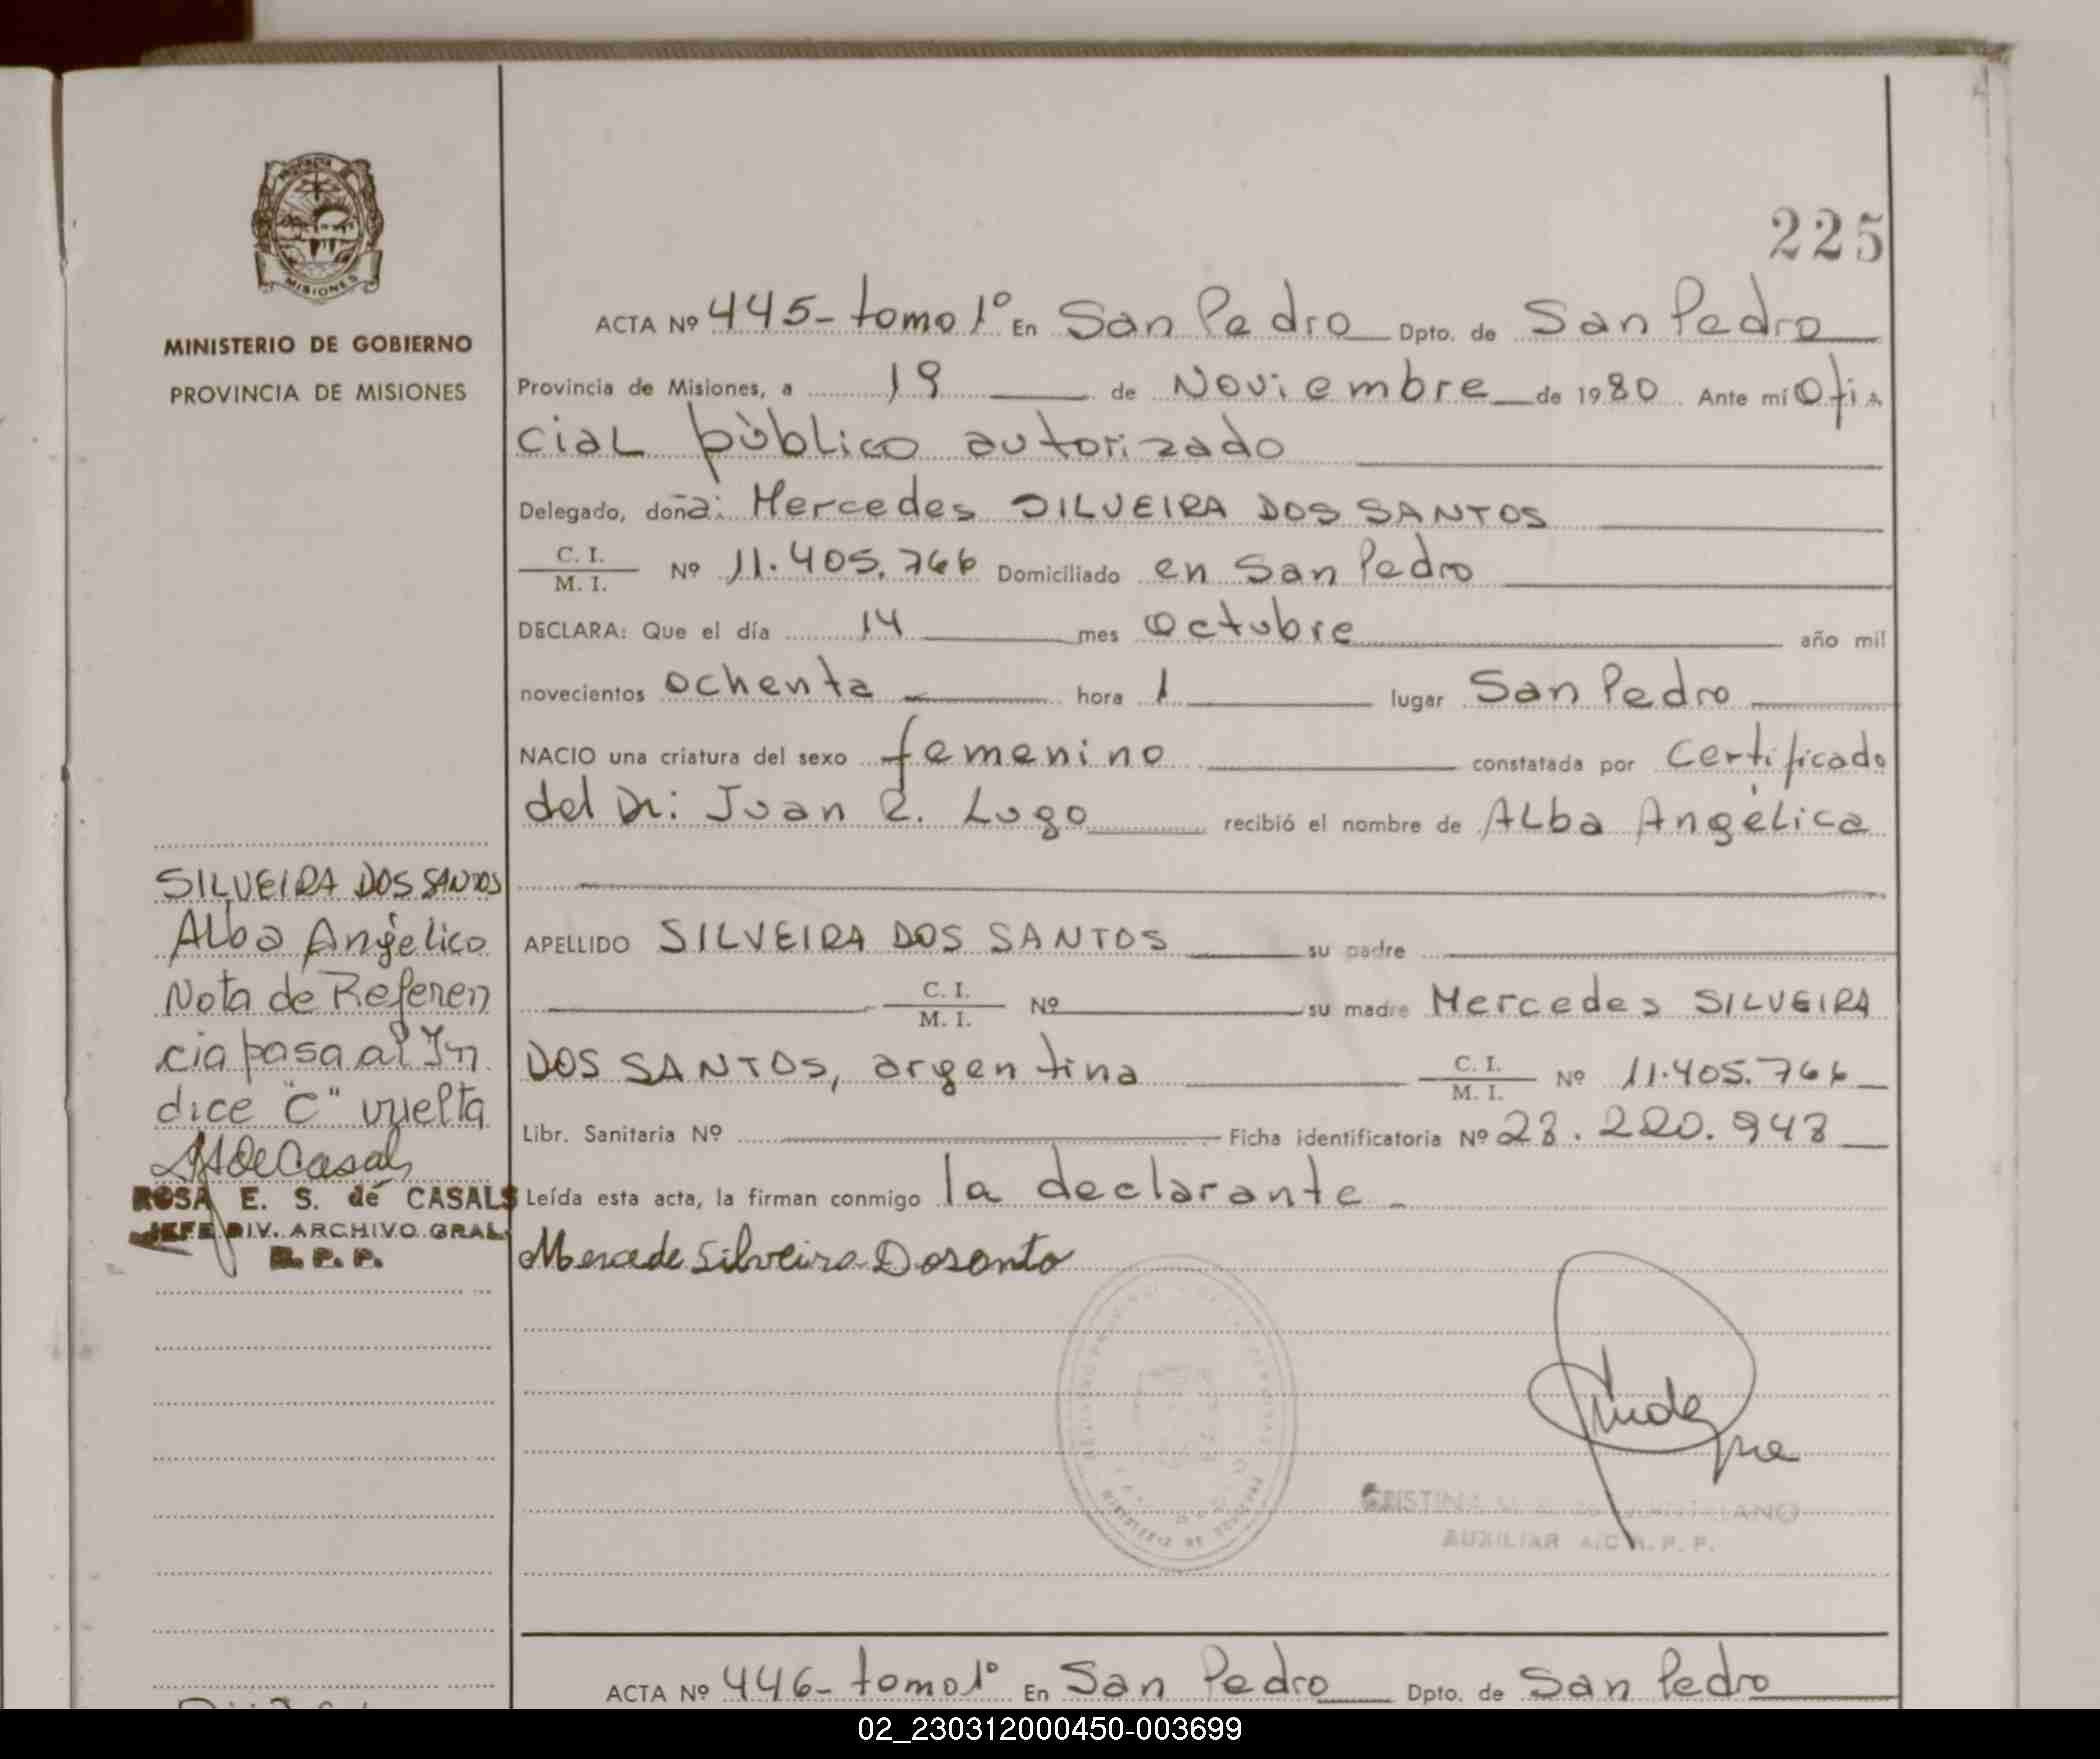 225
MINISTERIO DE GOBIERNO
PROVINCIA DE MISIONES
MISIONES
ACTA Nº 445- tomo 1º En San Pedro Dpto. de San Pedro
Provincia de Misiones, a 19 de Noviembre de 1980 Ante mi Ofi
cial público autorizado
Delegado, doña: Mercedes SILVEIRA DOS SANTOS
C. I.
M. I. Nº 11.405.766 Domiciliado en San Pedro
DECLARA: Que el día 14 mes Octubre año mil
novecientos ochenta hora 1 lugar San Pedro
NACIO una criatura del sexo femenino constatada por Certificado
del Dr: Juan R. Lugo recibió el nombre de Alba Angélica
APELLIDO SILVEIRA DOS SANTOS su padre
C. I.
M. I. Nº su madre Mercedes SILVEIRA
DOS SANTOS, argentina C. I.
M. I. Nº 11.405.766
Libr. Sanitaria Nº Ficha identificatoria Nº 28.220.943
Leída esta acta, la firman conmigo la declarante
Mercede Silveira Dosonto
SILVEIRA DOS SANTOS
Alba Angélica
Nota de Referen
cia pasa al In
dice "C" vuelta
ROSA E. S. de CASALS
JEFE DIV. ARCHIVO GRAL.
R. P. P.
AUXILIAR A/C R. P. P.
ACTA Nº 446- tomo 1º En San Pedro Dpto. de San Pedro
02_230312000450-003699